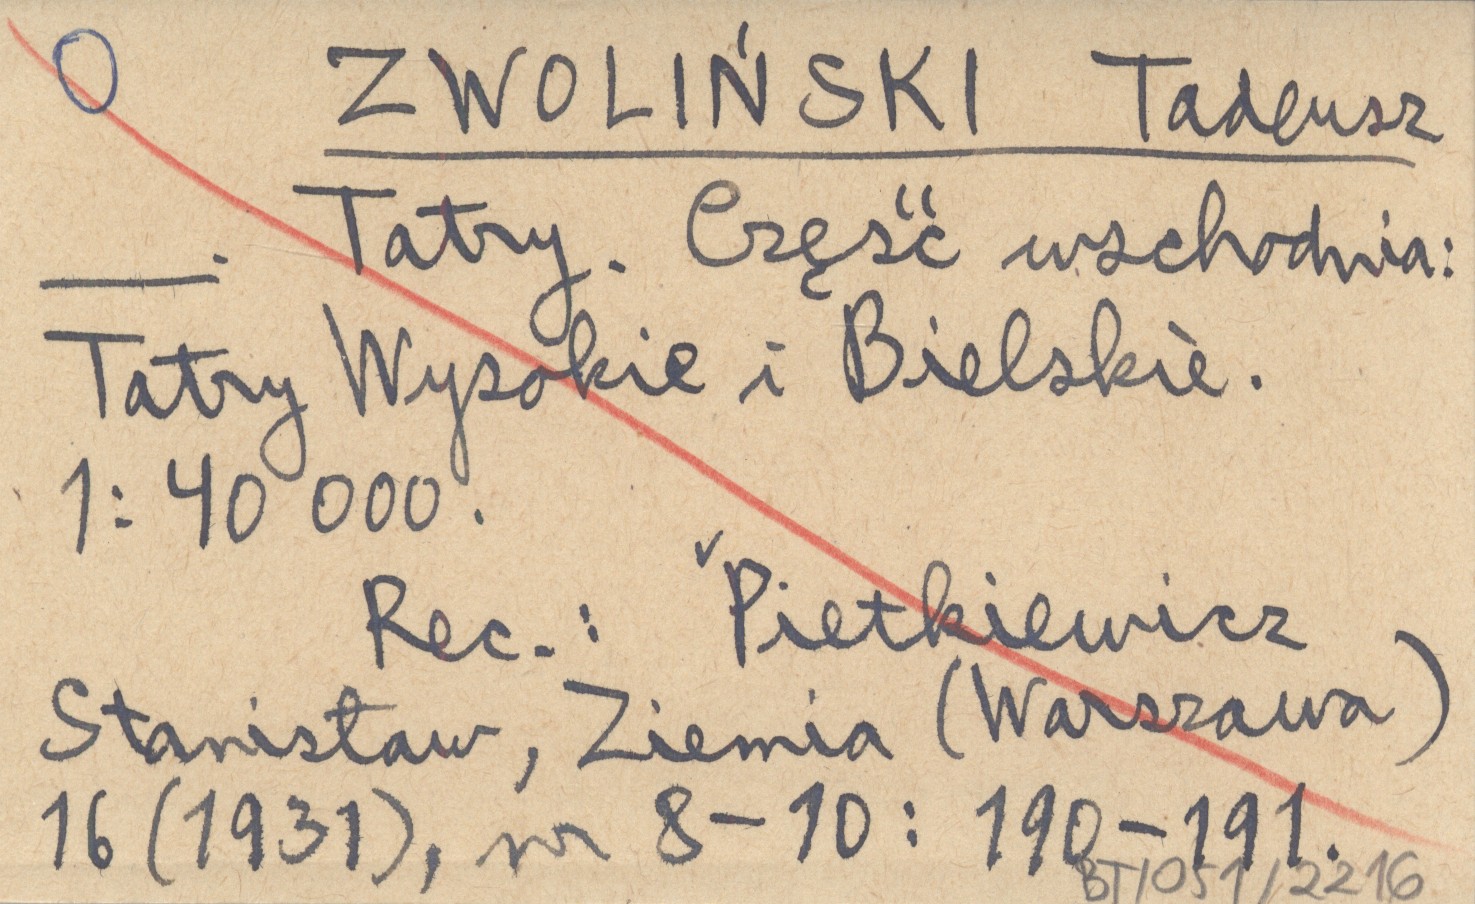 ZWOLIŃSKI Tadeusz
___. Tatry. Część wschodnia:
Tatry Wysokie i Bielskie.
1: 40 000.
Rec.: Pietkiewicz
Stanisław, Ziemia (Warszawa)
16 (1931), nr 8-10: 190-191.
BT/051/2216